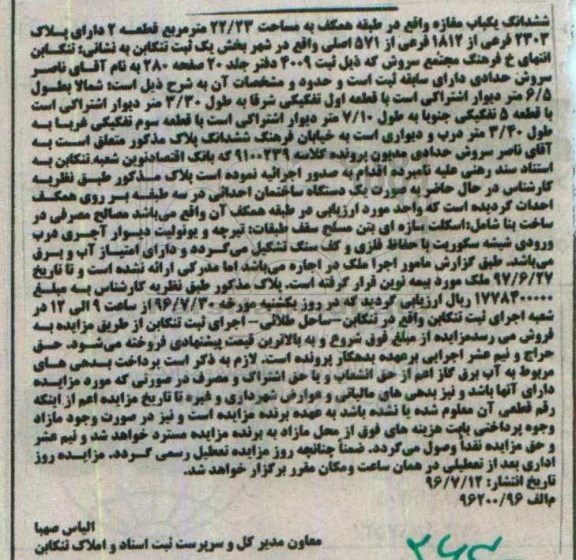 ششدانگ یکباب مغازه واقع در طبقه همکف به مساحت ۲۲/۲۳ مترمربع قطعه ۲ دارای پلاک
۲۳۰۳ فرعی از ۱۸۱۲ فرعی از ۵۷۱ اصلی واقع در شهر بخش یک ثبت تنکابن به نشانی: تنکابن
انتهای خ فرهنگ مجتمع سروش که ذیل ثبت ۴۰۰۹ دفتر جلد ۲۰ صفحه ۲۸۰ به نام آقای ناصر
سروش حدادی دارای سابقه ثبت است و حدود و مشخصات آن به شرح ذیل است: شمالا بطول
۶/۵ متر دیوار اشتراکی است با قطعه اول تفکیکی شرقا به طول ۳/۳۰ متر دیوار اشتراکی است
با قطعه ۵ تفکیکی جنوبا به طول ۷/۱۰ متر دیوار اشتراکی است با قطعه سوم تفکیکی غربا به
طول ۳/۴۰ متر درب و دیواری است به خیابان فرهنگ ششدانگ پلاک مذکور متعلق است به
آقای ناصر سروش حدادی مدیون پرونده کلاسه ۹۱۰۰۲۳۹ که بانک اقتصادنوین شعبه تنکابن به
استناد سند رهنی علیه نامبرده اقدام به صدور اجرائیه نموده است پلاک مذکور طبق نظریه
کارشناس در حال حاضر به صورت یک دستگاه ساختمان احداثی در سه طبقه بر روی همکف
احداث گردیده است که واحد مورد ارزیابی در طبقه همکف آن واقع می‌باشد مصالح مصرفی در
ساخت بنا شامل: اسکلت سازه ای بتن مسلح سقف طبقات: تیرچه و یونولیت دیوار آجری درب
ورودی شیشه سکوریت با حفاظ فلزی و کف سنگ تشکیل می‌گردد و دارای امتیاز آب و برق
می‌باشد. طبق گزارش مامور اجرا ملک در اجاره می‌باشد اما مدرکی ارائه نشده است و تا تاریخ
۹۷/۶/۲۷ ملک مورد بیمه نوین قرار گرفته است. پلاک مذکور طبق نظریه کارشناس به مبلغ
۱۷۷۸۴۰۰۰۰۰ ریال ارزیابی گردید که در روز یکشنبه مورخه ۹۶/۷/۳۰ از ساعت ۹ الی ۱۲ در
شعبه اجرای ثبت تنکابن واقع در تنکابن – ساحل طلائی – اجرای ثبت تنکابن از طریق مزایده به
فروش می رسد مزایده از مبلغ فوق شروع و به بالاترین قیمت پیشنهادی فروخته می‌شود. حق
حراج و نیم عشر اجرایی برعهده بدهکار پرونده است. لازم به ذکر است پرداخت بدهی های
مربوط به آب برق گاز اعم از حق انشعاب و یا حق اشتراک و مصرف در صورتی که مورد مزایده
دارای آنها باشد و نیز بدهی های مالیاتی و عوارض شهرداری و غیره تا تاریخ مزایده اعم از اینکه
رقم قطعی آن معلوم شده یا نشده باشد به عهده برنده مزایده است و نیز در صورت وجود مازاد
وجوه پرداختی بابت هزینه های فوق از محل مازاد به برنده مزایده مسترد خواهد شد و نیم عشر
و حق مزایده نقداً وصول می‌گردد. ضمناً چنانچه روز مزایده تعطیل رسمی گردد. مزایده روز
اداری بعد از تعطیلی در همان ساعت و مکان مقرر برگزار خواهد شد.
تاریخ انتشار: ۹۶/۷/۱۲
م الف ۹۶۲۰۰/۹۶
الیاس صهبا
معاون مدیر کل و سرپرست ثبت اسناد و املاک تنکابن